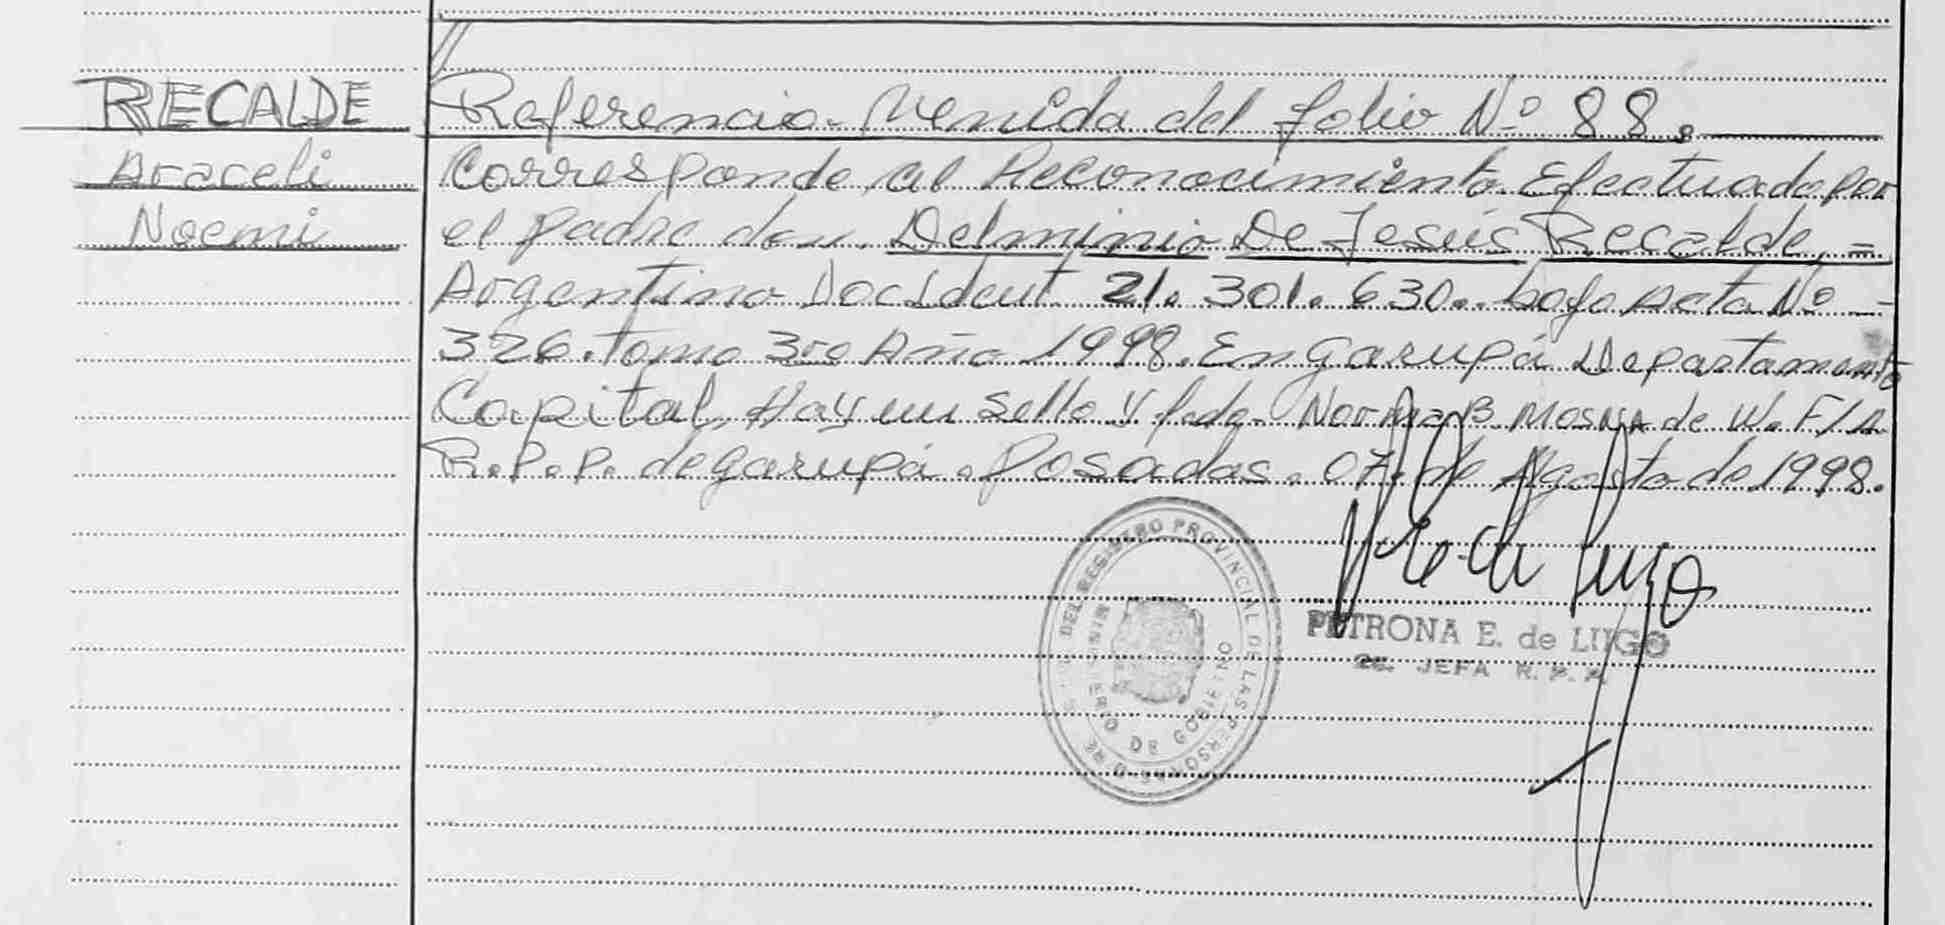 RECALDE
Araceli
Noemi
Referencia Venida del folio Nº 88.
Corresponde al Reconocimiento Efectuado por
el padre don Delminio De Jesús Recalde, =
Argentino Doc Ident 21.301.630.. bajo Acta Nº -
326. Tomo 3ro Año 1998. En Garupá Departamento
Capital, Hay un sello y fdo. Norma B. Mosna de W. F/A
R.P.P. de Garupá. Posadas. 07 de Agosto de 1998.
DEL REGISTRO PROVINCIAL DE LAS PERSONAS
MINISTERIO DE GOBIERNO
PETRONA E. de LUGO
JEFA R. P. P.